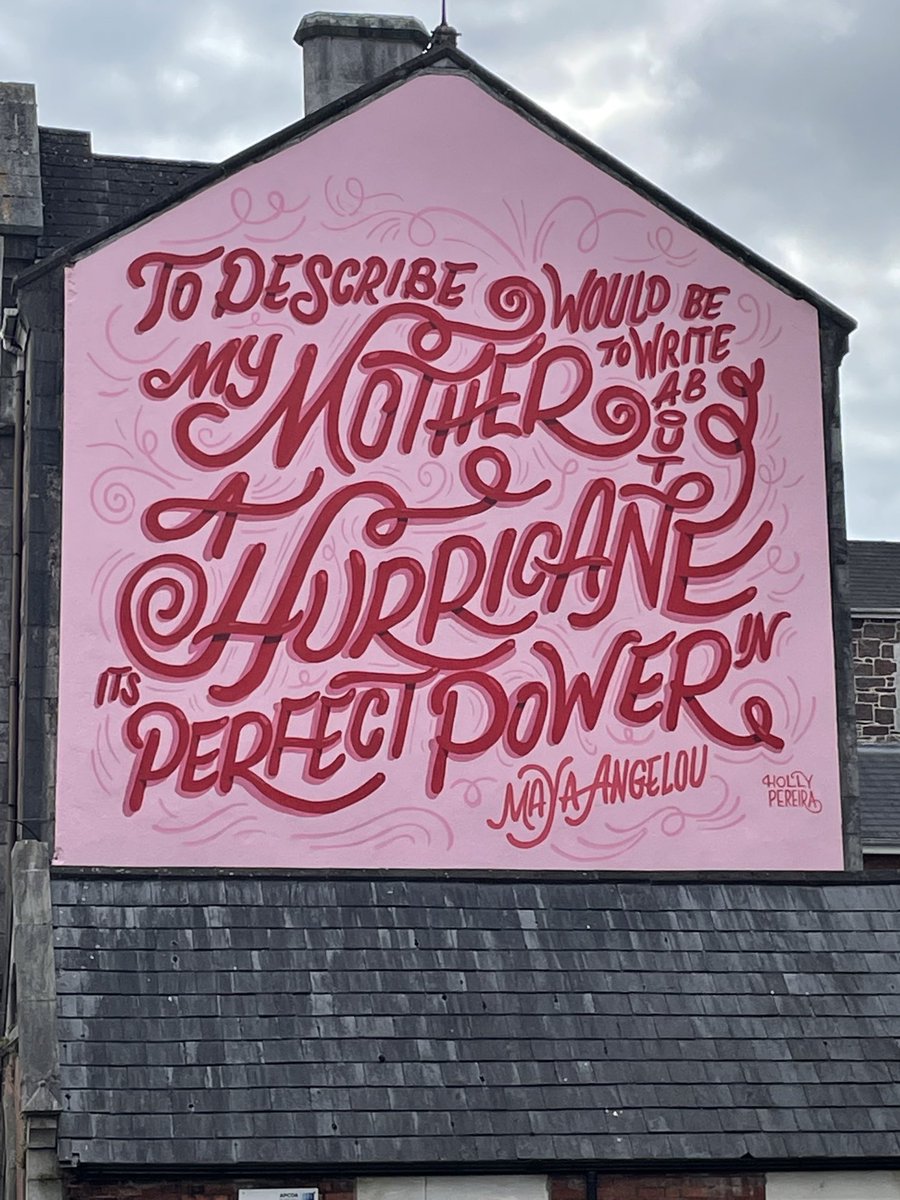 TO DESCRIBE
MY MOTHER
WOULD BE
TO WRITE
ABOUT
A HURRICANE
IN
ITS
PERFECT POWER
MAYA ANGELOU
HOLLY
PEREIRA
APCOA